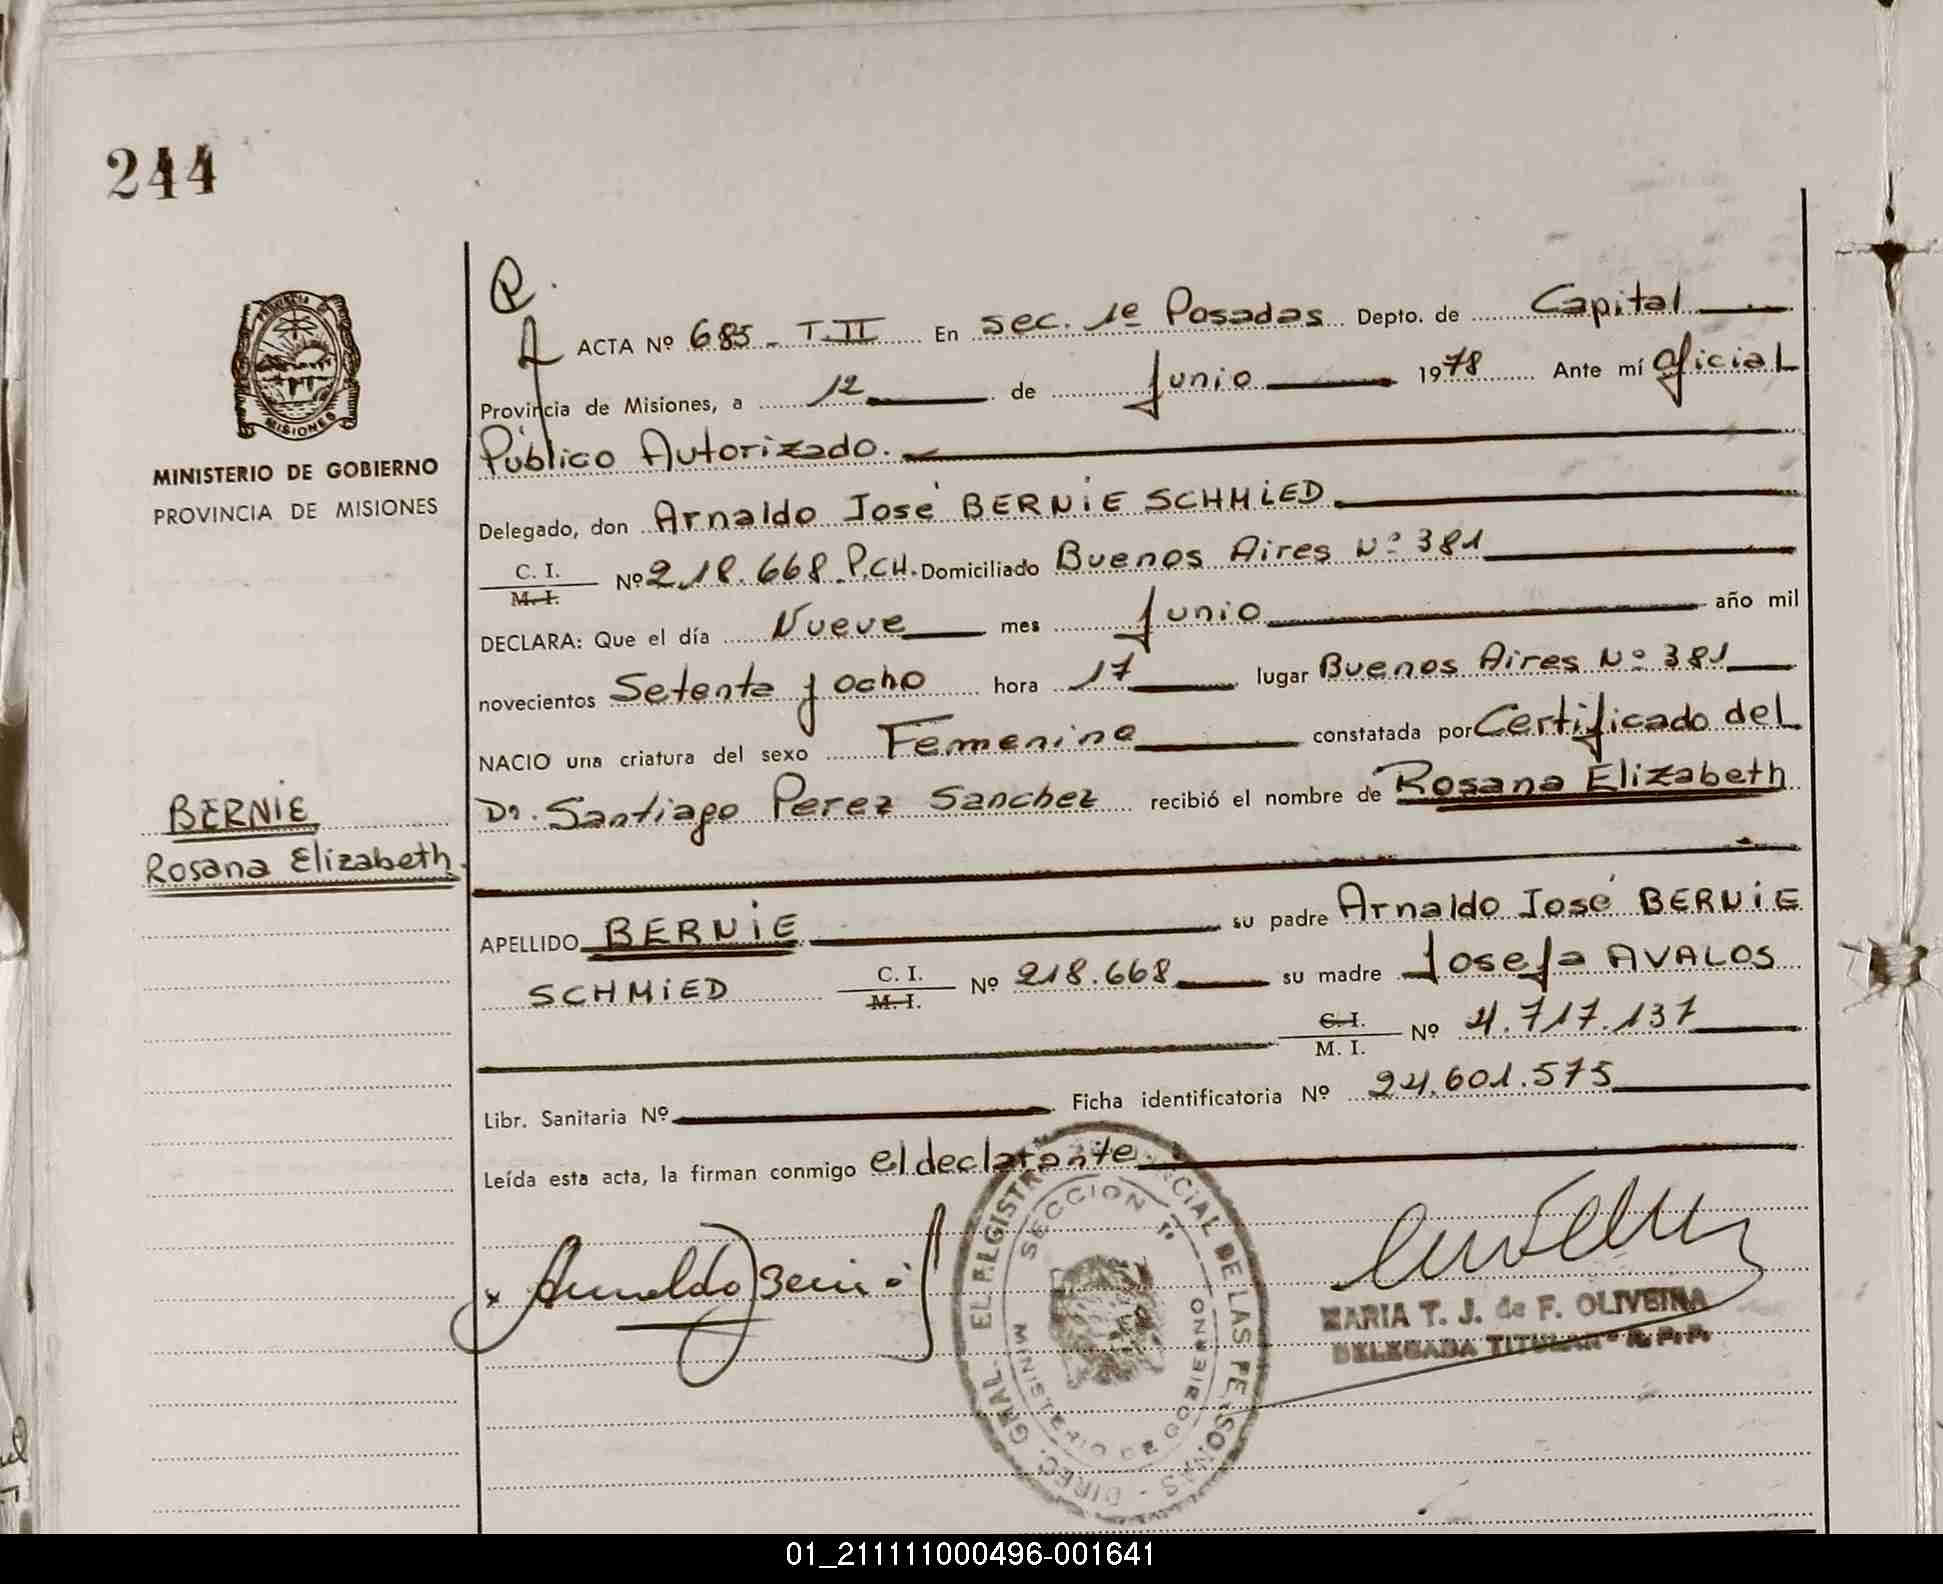 244
R.
ACTA Nº 685 - T. II En sec. 1ª Posadas Depto. de Capital
Provincia de Misiones, a 12 de Junio 1978 Ante mí Oficial
Público Autorizado.
Delegado, don Arnaldo José BERNIE SCHMIED
C. I.
M. I. Nº 218.668 P.CH. Domiciliado Buenos Aires Nº 381
DECLARA: Que el día Nueve mes Junio año mil
novecientos Setenta y ocho hora 17 lugar Buenos Aires Nº 381
NACIO una criatura del sexo Femenino constatada por Certificado del
Dr. Santiago Perez Sanchez recibió el nombre de Rosana Elizabeth
APELLIDO BERNIE su padre Arnaldo José BERNIE
SCHMIED C. I.
M. I. Nº 218.668 su madre Josefa AVALOS
C. I.
M. I. Nº 4.717.137
Libr. Sanitaria Nº Ficha identificatoria Nº 24.601.575
Leída esta acta, la firman conmigo el declarante
PROVINCIA DE
MISIONES
MINISTERIO DE GOBIERNO
PROVINCIA DE MISIONES
BERNIE
Rosana Elizabeth
x Arnaldo J Bernie
SECCION 1º
MINISTERIO DE GOBIERNO
MARIA T. J. de F. OLIVEIRA
DELEGADA TITULAR R. P. P.
01_211111000496-001641